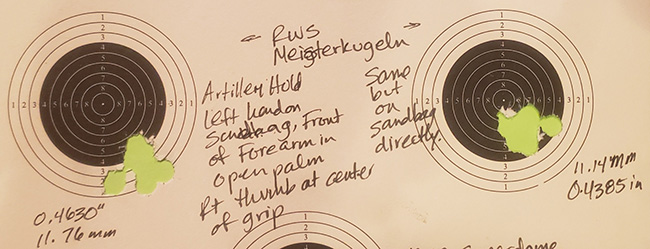 ← RWS →
Meisterkugeln
Artillery Hold
Left hand on
Sandbag, Front
of Forearm in
open palm
Rt thumb at center
of grip
Same
but
on
sandbag
directly.
0.4630"
11.76 mm
11.14 mm
0.4385 in